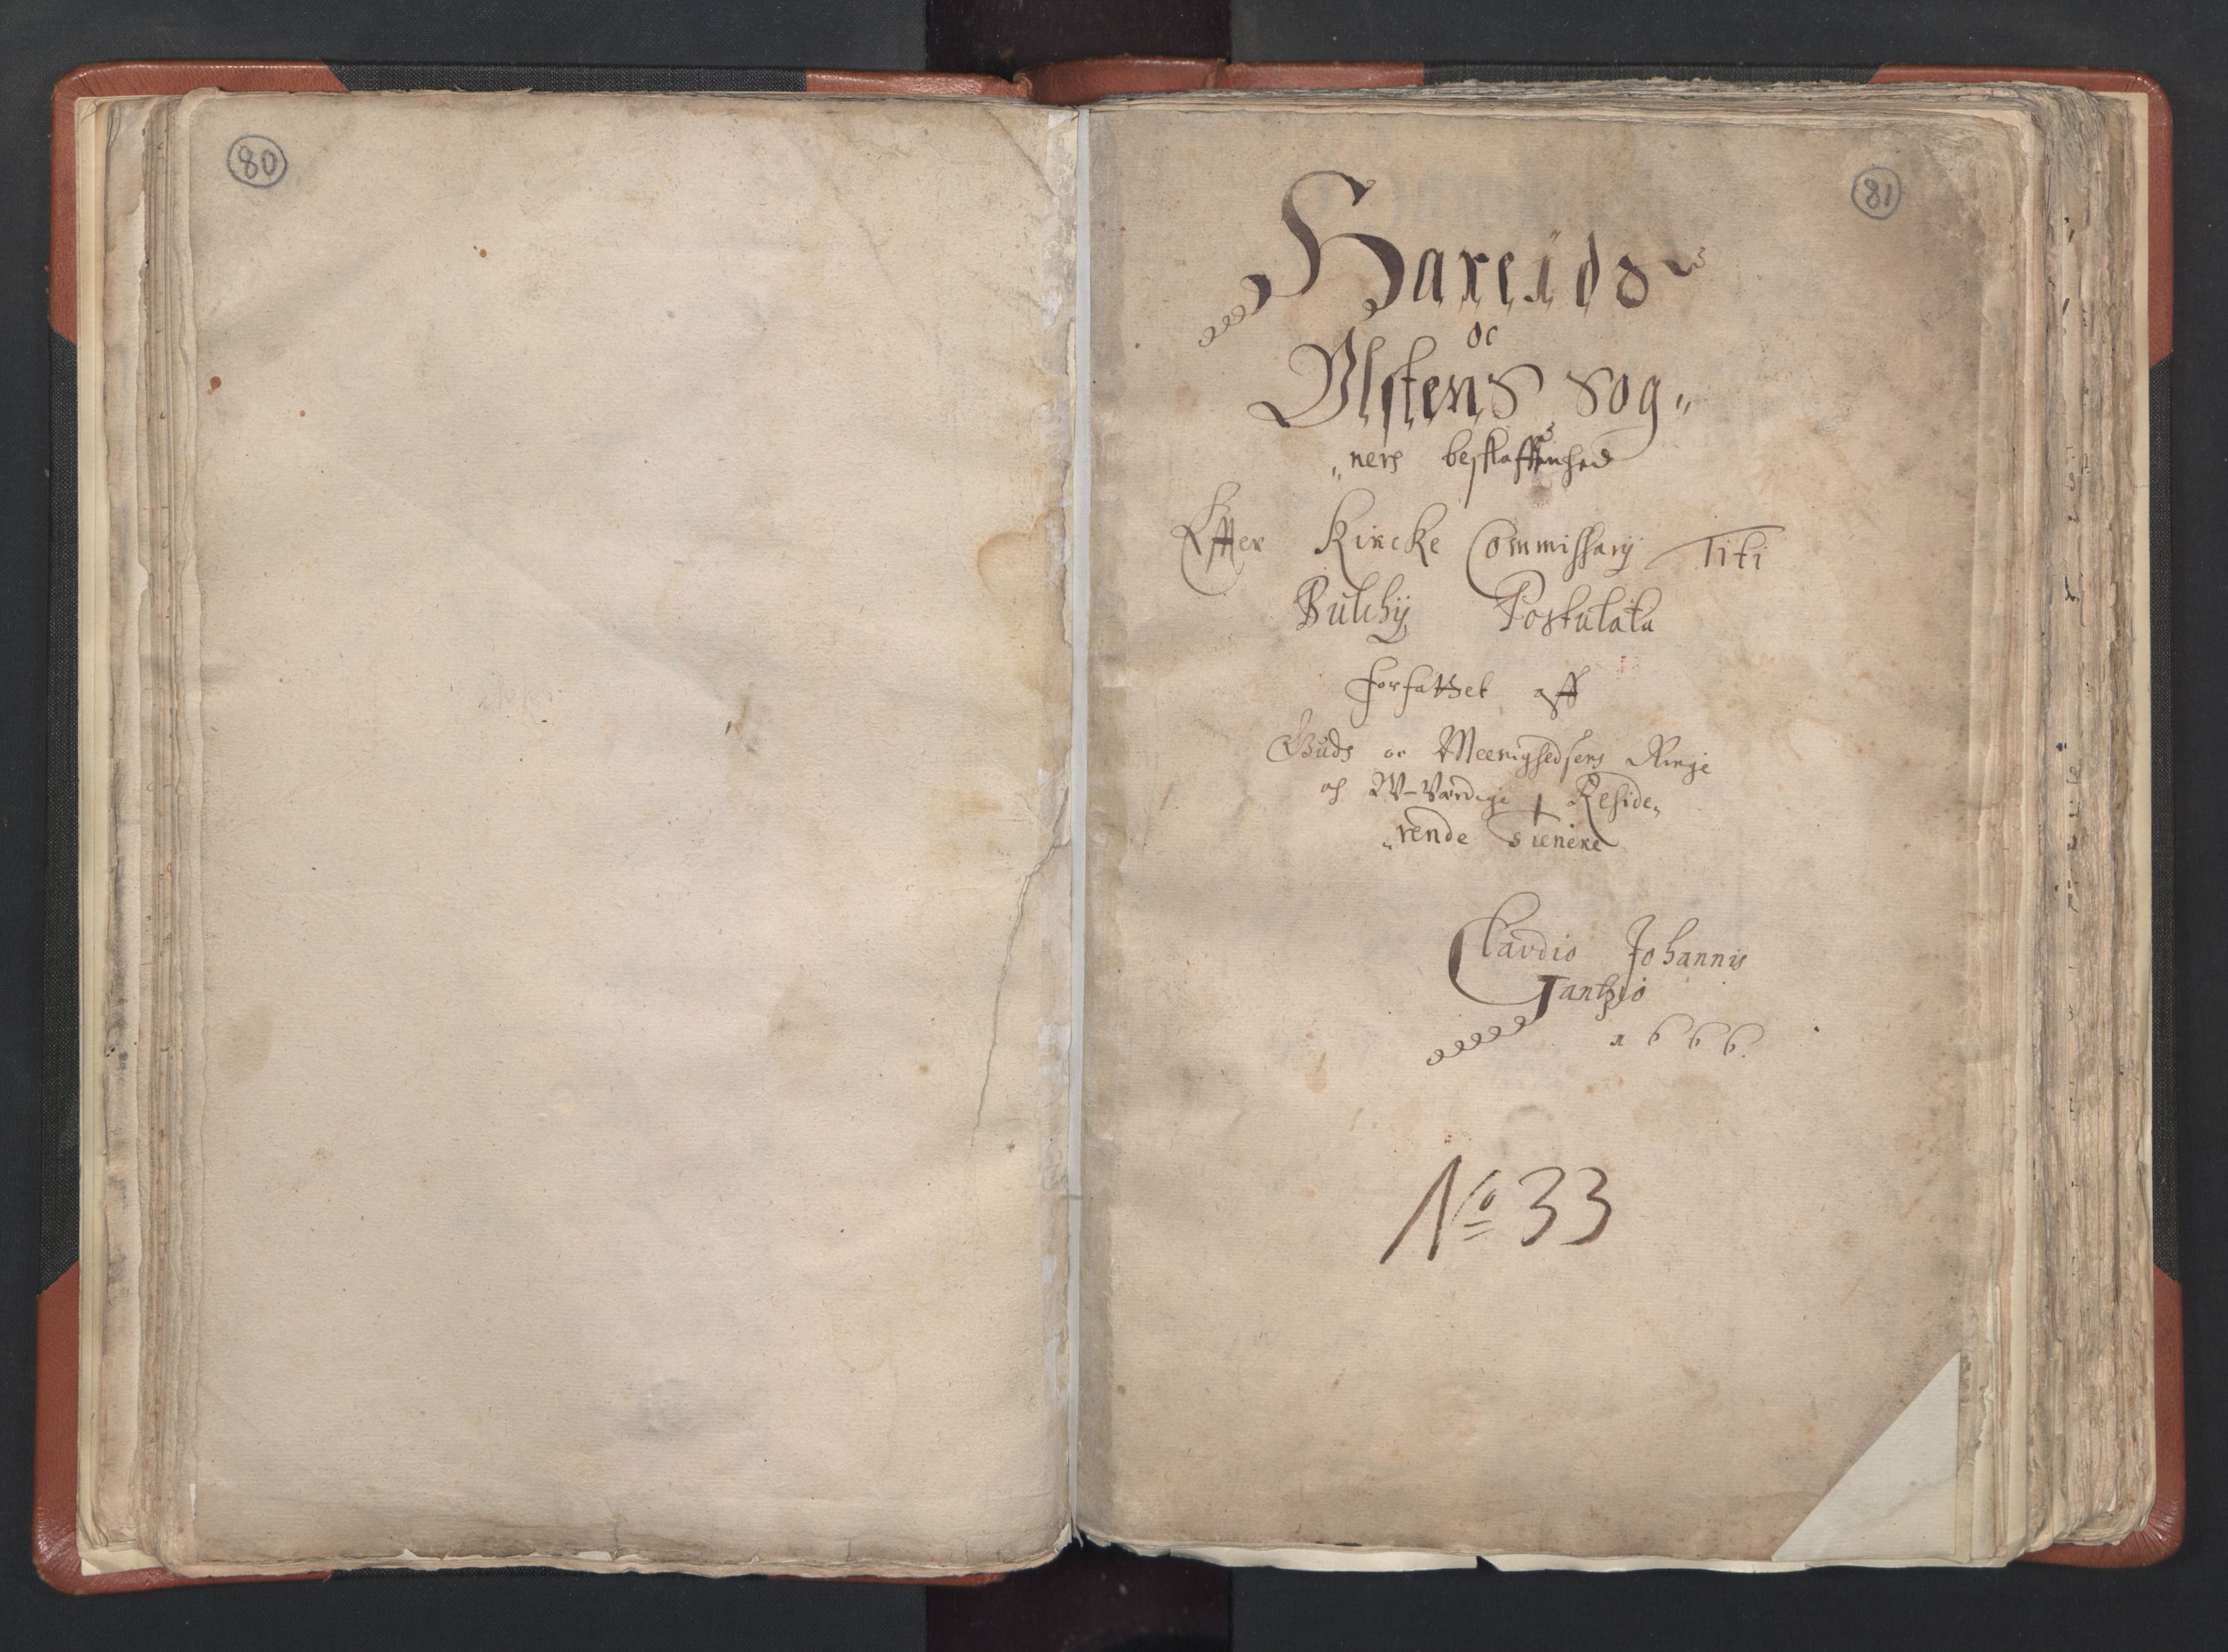 80
81
Hareids
oc
Ulstens Sog„
„ners beskaffenhed
Effter Kircke Commissarij Titi
Bulchij Postulata
forfattet aff
Guds oc Meenighedsens Ringe
oc W-Værdige Reside„
„rende Tienere
Claudio Johannis
Gantzio
1666.
No 33